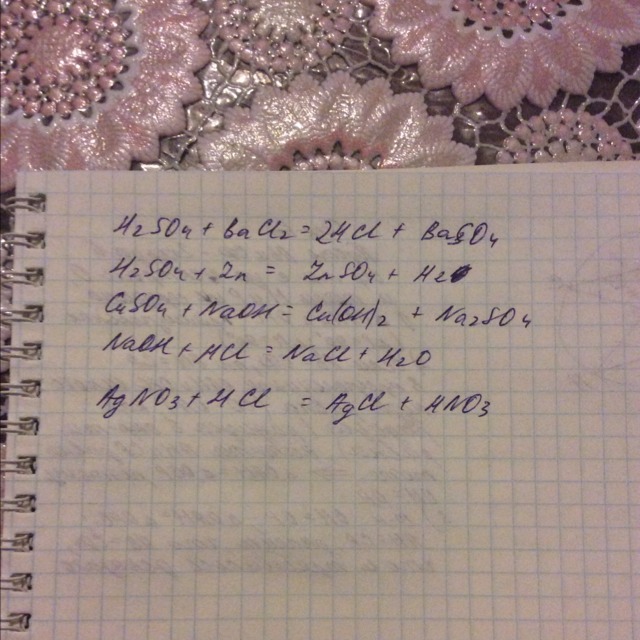 H2SO4 + BaCl2 = 2HCl + BaSO4
H2SO4 + Zn = ZnSO4 + H2
CuSO4 + NaOH = Cu(OH)2 + Na2SO4
NaOH + HCl = NaCl + H2O
AgNO3 + HCl = AgCl + HNO3